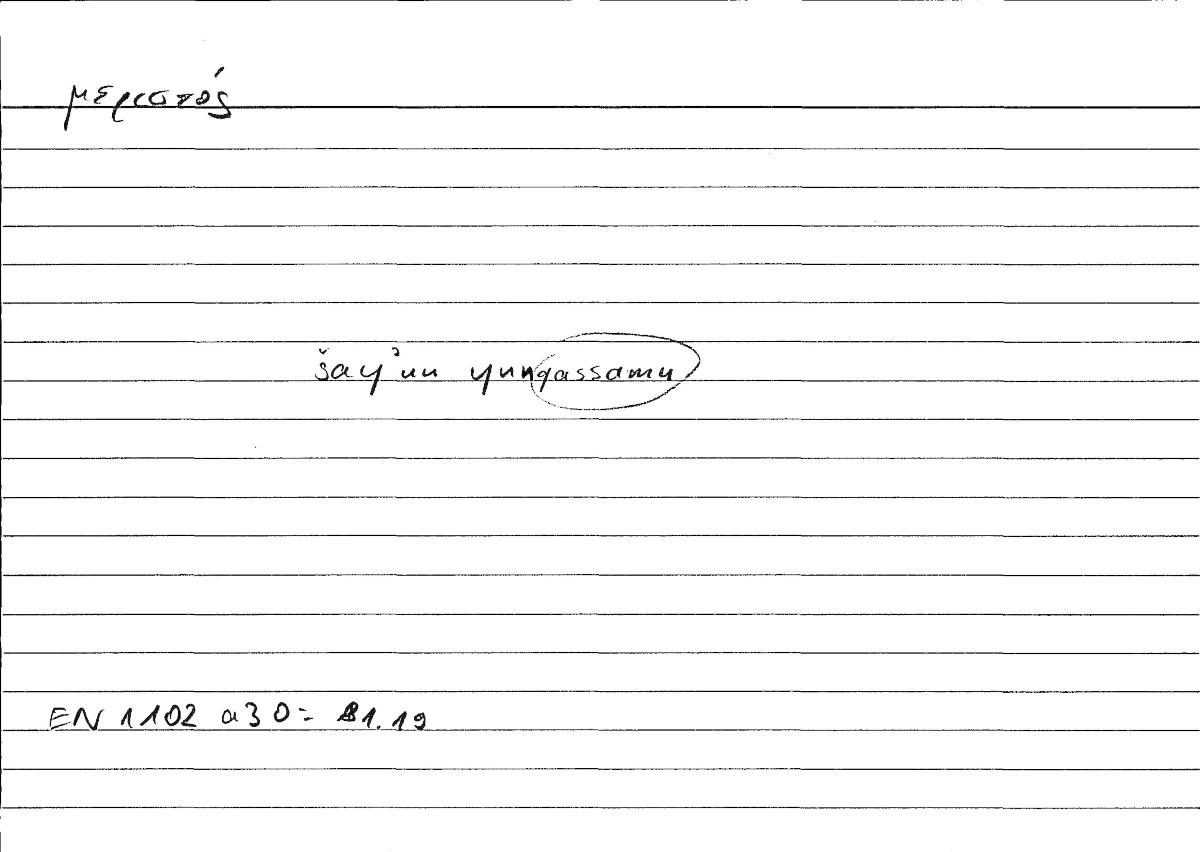 μεριστός
šayʾun yunqassamu
EN 1102 a30 = 81.19